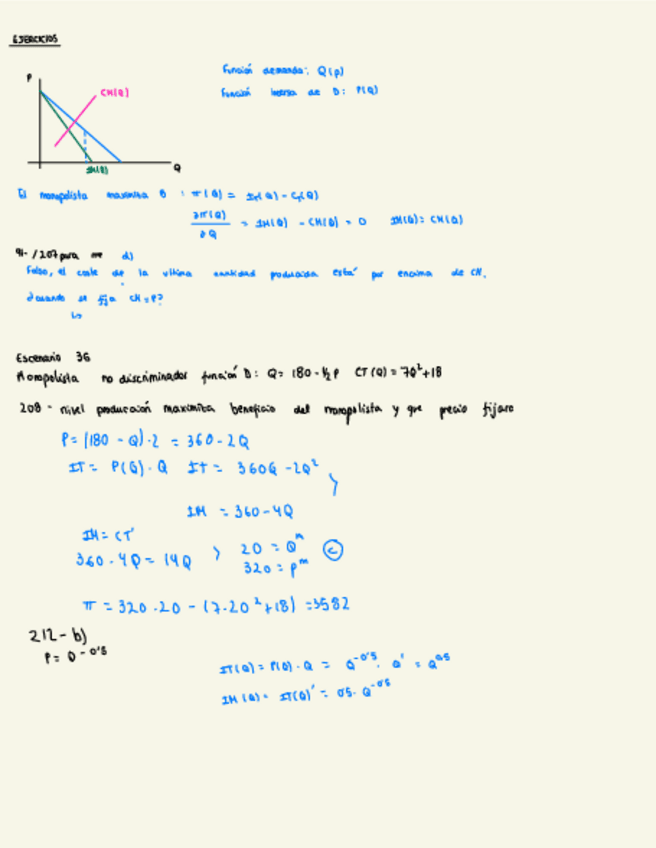 EJERCICIOS
P
CM(Q)
IM(Q)
Q
Función demanda: Q(p)
Función inversa de D: P(Q)
El monopolista maximiza B : π(Q) = IT(Q) - CT(Q)
∂π(Q) / ∂Q = IM(Q) - CM(Q) = 0 IM(Q) = CM(Q)
/207 para me d)
Falso, el coste de la ultima cantidad producida está por encima de CM.
¿cuando se fija CM=P?
↳
Escenario 36
Monopolista no discriminador función D: Q= 180 - 1/2 P CT(Q) = 7Q²+18
208 - nivel producción maximiza beneficio del monopolista y que precio fijara
P= (180 - Q)·2 = 360 - 2Q
IT = P(Q) · Q IT = 360Q - 2Q²
IM = 360 - 4Q
IM = CT'
360 - 4Q = 14Q > 20 = Qᵐ c
320 = Pᵐ
π = 320·20 - (7·20²+18) = 3582
212 - b)
P = Q^-0'5
IT(Q) = P(Q) · Q = Q^-0'5 · Q' = Q^0.5
IM(Q) = IT(Q)' = 0'5 · Q^-0'5